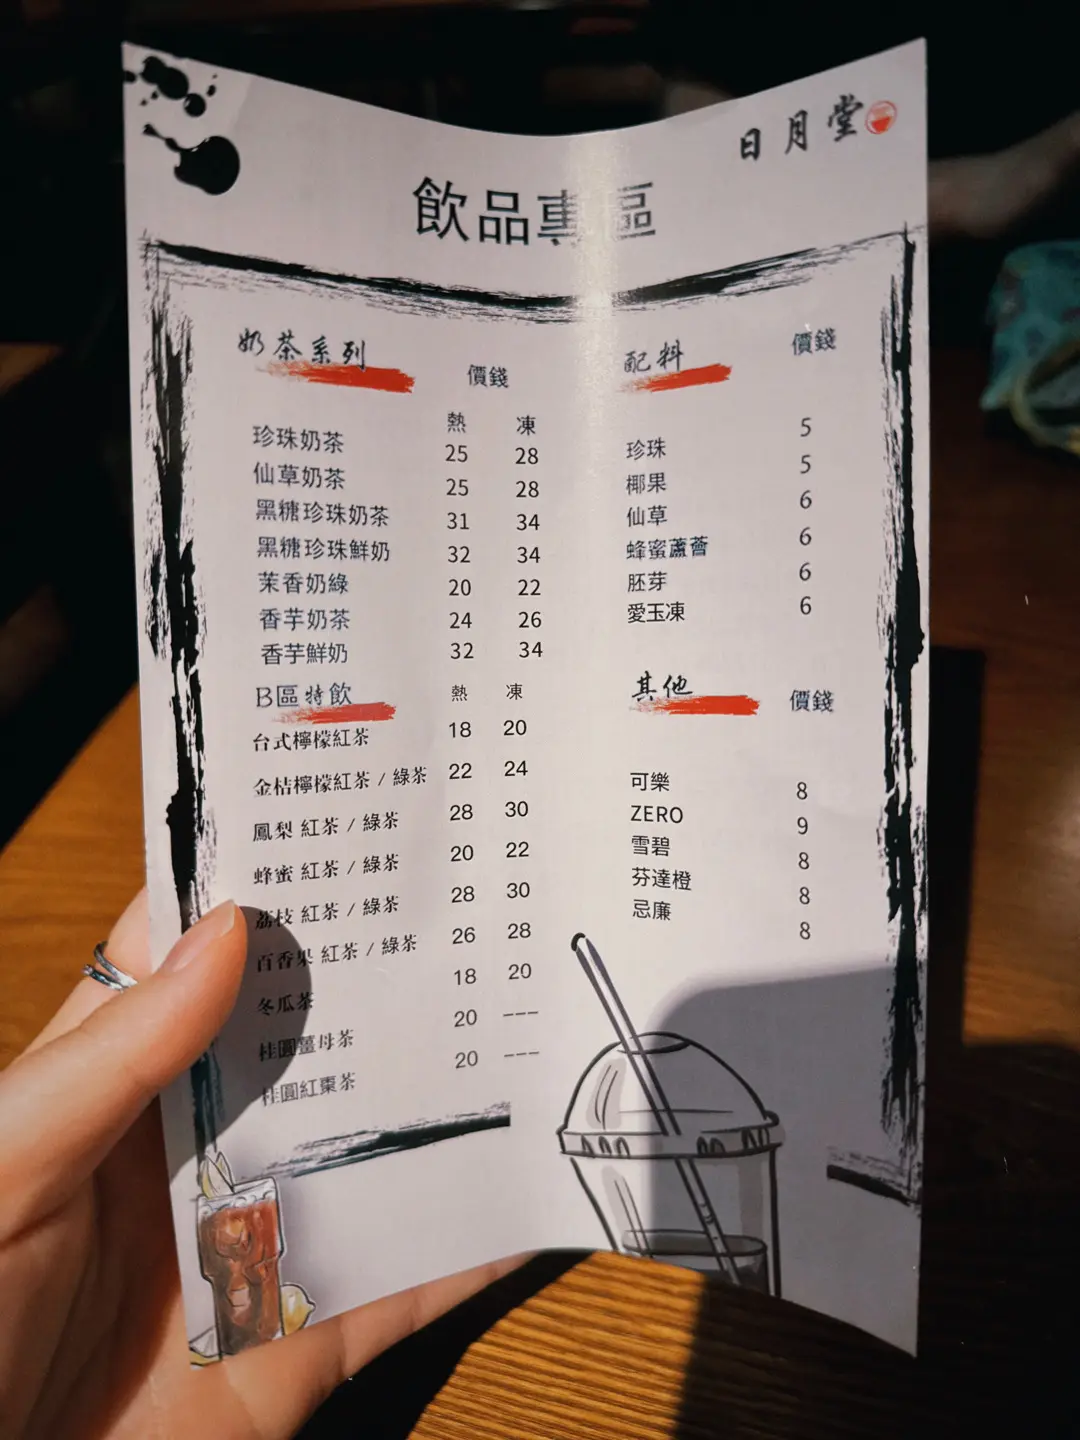 日月堂
飲品專區
奶茶系列 價錢
熱 凍
珍珠奶茶 25 28
仙草奶茶 25 28
黑糖珍珠奶茶 31 34
黑糖珍珠鮮奶 32 34
茉香奶綠 20 22
香芋奶茶 24 26
香芋鮮奶 32 34
B區特飲 熱 凍
台式檸檬紅茶 18 20
金桔檸檬紅茶 / 綠茶 22 24
鳳梨 紅茶 / 綠茶 28 30
蜂蜜 紅茶 / 綠茶 20 22
荔枝 紅茶 / 綠茶 28 30
百香果 紅茶 / 綠茶 26 28
冬瓜茶 18 20
桂圓薑母茶 20 ---
桂圓紅棗茶 20 ---
配料 價錢
珍珠 5
椰果 5
仙草 6
蜂蜜蘆薈 6
胚芽 6
愛玉凍 6
其他 價錢
可樂 8
ZERO 9
雪碧 8
芬達橙 8
忌廉 8